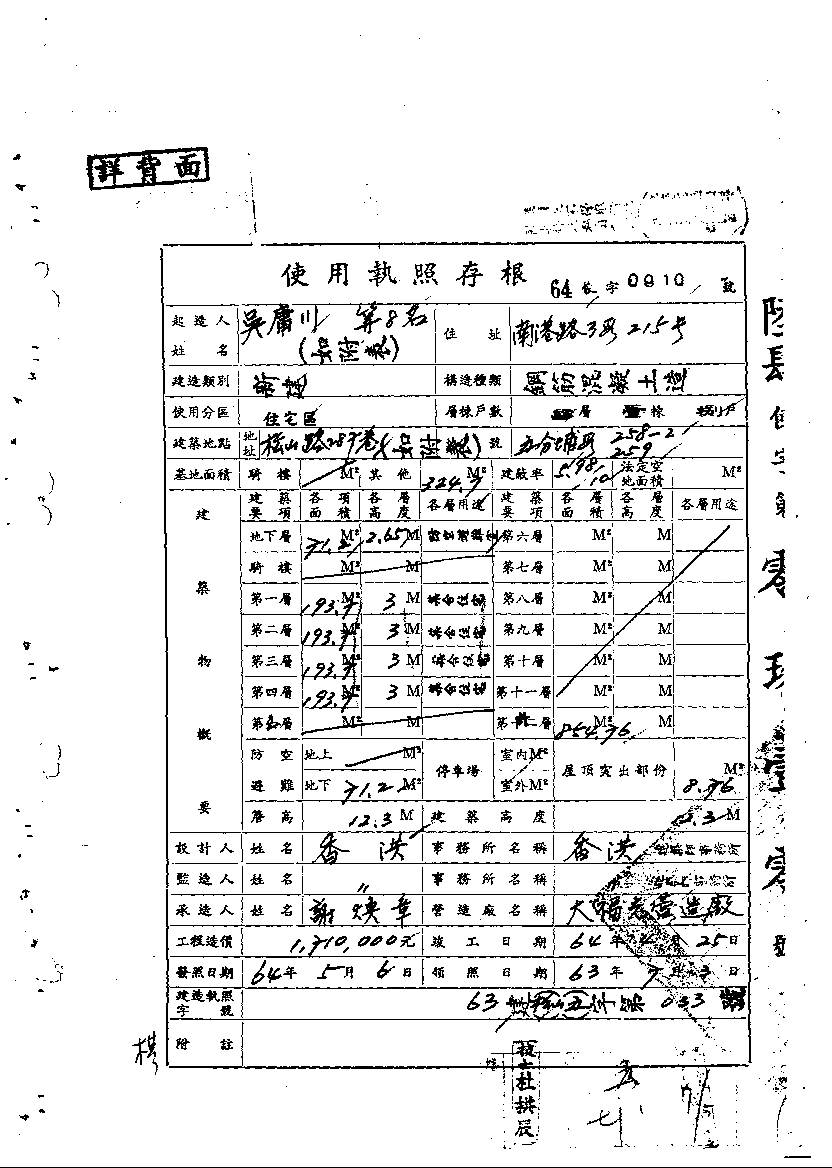 詳背面
使用執照存根 64 使字 0910 號
起造人姓名 吳庸川 等8名(如附表) 住址 南港路3段215号
建造類別 新建 構造種類 鋼筋混凝土造
使用分區 住宅區 層棟戶數 層 棟 戶
建築地點 地址 松山路287巷(如附表)號 五分埔段 258-2 259
基地面積 騎樓 M² 其他 324.7 M² 建蔽率 法定空地面積 M²
建築物概要
建築要項 各項面積 各層高度 各層用途 建築要項 各層面積 各層高度 各層用途
地下層 71.2 M² 2.65 M 第六層 M² M
騎樓 M² M 第七層 M² M
第一層 193.9 M² 3 M 集合住宅 第八層 M² M
第二層 193.9 M² 3 M 集合住宅 第九層 M² M
第三層 193.9 M² 3 M 集合住宅 第十層 M² M
第四層 193.9 M² 3 M 集合住宅 第十一層 M² M
第五層 M² M 第十二層 854.76 M² M
防空避難 地上 M² 停車場 室內M² 屋頂突出部份 8.76 M²
地下 71.2 M² 室外M²
簷高 12.3 M 建築高度 12.3 M
設計人 姓名 香洪 事務所名稱 香洪
監造人 姓名 〃 事務所名稱
承造人 姓名 謝煥章 營造廠名稱 大福營造廠
工程造價 1,710,000元 竣工日期 64年4月25日
發照日期 64年5月6日 領照日期 63年7月3日
建造執照字號 63 松山五 033
附註
技士杜拱辰